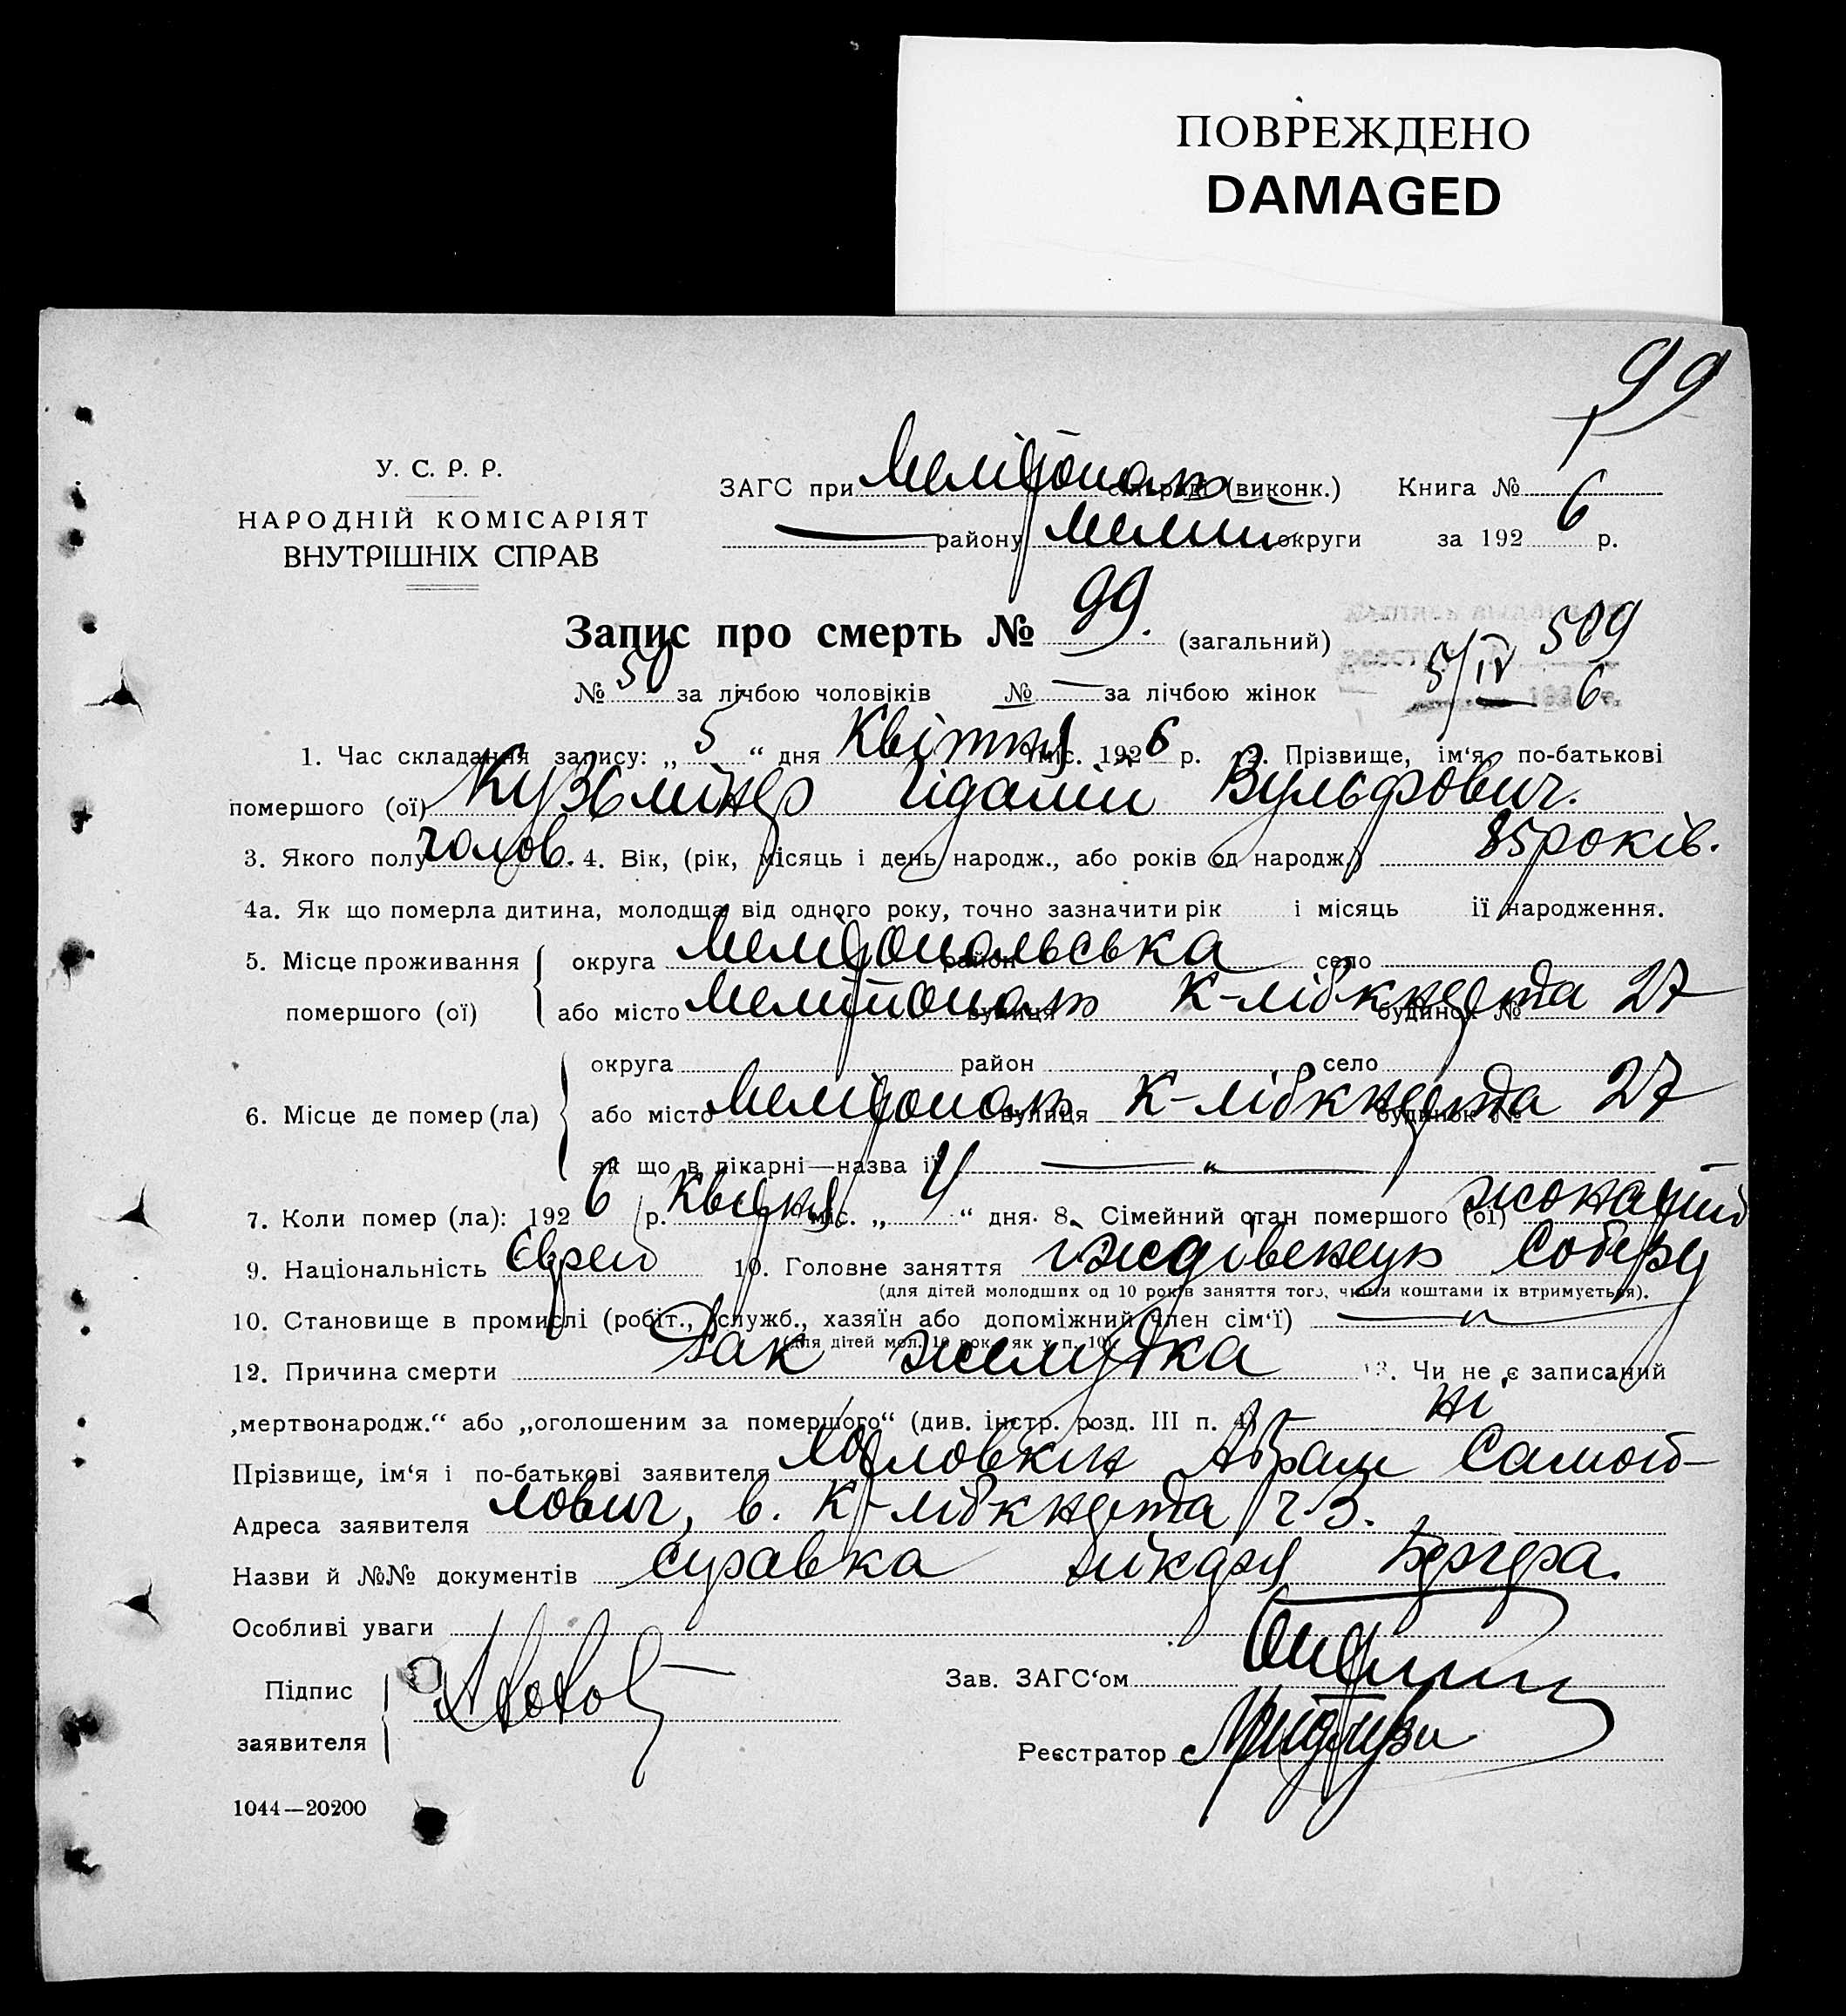 ПОВРЕЖДЕНО
DAMAGED
99
У. С. Р. Р.
НАРОДНІЙ КОМІСАРІЯТ
ВНУТРІШНІХ СПРАВ
ЗАГС при Мелітополь сільраді (виконк.) Книга № 6
— району Мелит округи за 1926 р.
Запис про смерть № 99. (загальний)
5/IV 509
6
№ 50 за лічбою чоловіків № — за лічбою жінок
1. Час складання запису: „ 5 “ дня Квітня міс. 1926 р. 2. Прізвище, ім‘я, по-батькові
помершого (ої) Кузьмінер Вульфович.
3. Якого полу чолов. 4. Вік, (рік, місяць і день народж., або років од народж.) 85 років.
4а. Як що померла дитина, молодща від одного року, точно зазначити рік і місяць її народження.
5. Місце проживання помершого (ої)
округа Мелітопольська район село
або місто Мелітополь вулиця К-лібкнехта будинок № 27
6. Місце де помер (ла)
округа район село
або місто Мелітополь вулиця К-лібкнехта будинок № 27
як що в лікарні—назва її — „ —
7. Коли помер (ла): 1926 р. Квітня міс. „ 4 “ дня. 8. Сімейний стан помершого (ої) жонатий
9. Національність Єврей 10. Головне заняття іждівенець
(для дітей молодших од 10 років заняття того, чиїми коштами їх втримується).
10. Становище в промислі (робіт., служб., хазяїн або допоміжний член сім‘ї) — „ —
(для дітей мол. 10 рок. як у п. 10).
12. Причина смерти Рак желудка 13. Чи не є записаний
„мертвонародж.“ або „оголошеним за помершого“ (див. інстр. розд. III п. 4) — ні
Прізвище, ім‘я і по-батькові заявителя Абрам Самой-
Адреса заявителя лович, в. К-лібкнехта ч 3.
Назви й №№ документів справка лікаря Бергера.
Особливі уваги
Підпис заявителя
Зав. ЗАГС‘ом
Реєстратор
1044—20200